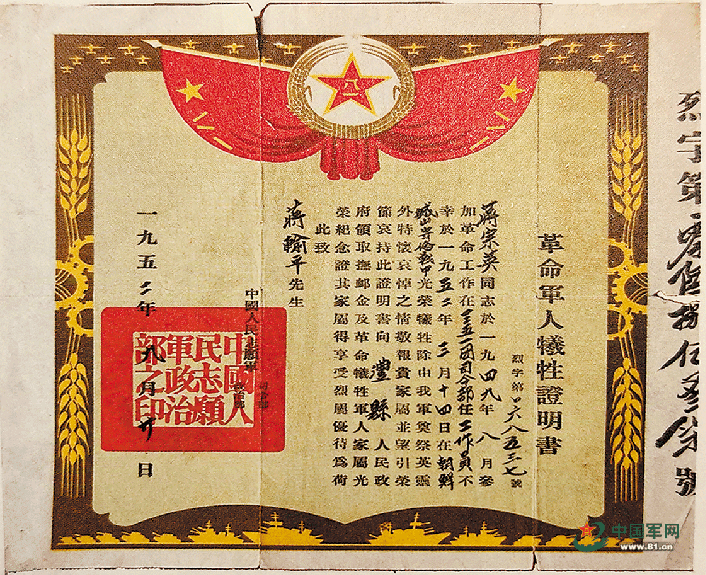 烈字第零陸捌伍叁號
革命軍人犧牲證明書
烈字第〇六八五三七號
蔣宗英同志於一九四九年八月參
加革命工作在三五一團司令部任工作員不
幸於一九五二年三月十四日在朝鮮
中光榮犧牲除由我軍奠祭英靈
外特懷哀悼之情敬報貴家屬並望引榮
節哀持此證明書向灃縣人民政
府領取撫卹金及革命犧牲軍人家屬光
榮紀念證其家屬得享受烈屬優待為荷
此致
蔣翰平先生
中國人民志願軍
中國人
民志願
軍政治
部之印
一九五二年九月廿日
八一
八一
八一
中国军网
www.81.cn